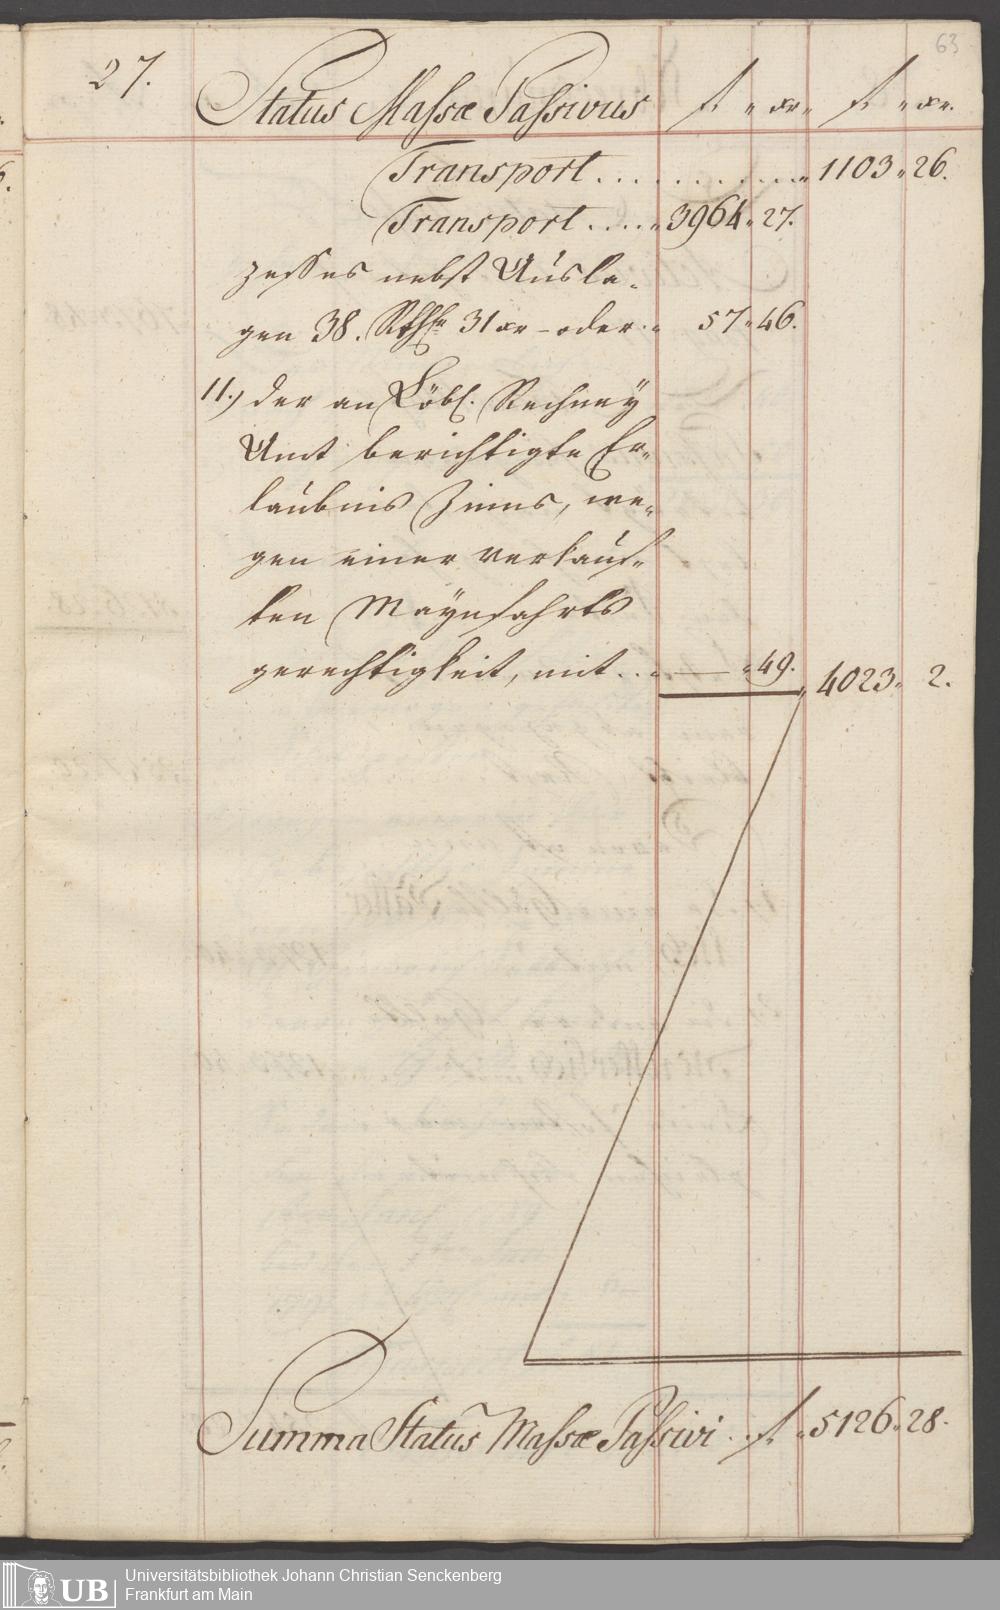 63
27. Status Massæ Passivus f. " xr " f. " xr.
Transport . . . . . . . . . . " 1103 " 26.
Transport . . . . " 3964 " 27.
zesses nebst Ausla-
gen 38. Rthlr 31 xr - oder . " 57 " 46.
11.) der an Löbl. Rechney
Amt berichtigte Er-
laubnis Zinns, we-
gen einer verkauf-
ten Maynfahrts
gerechtigkeit, mit . . " — " 49. " 4023 " 2.
Summa Status Massæ Passivi . . f. " 5126 " 28.
UB
Universitätsbibliothek Johann Christian Senckenberg
Frankfurt am Main